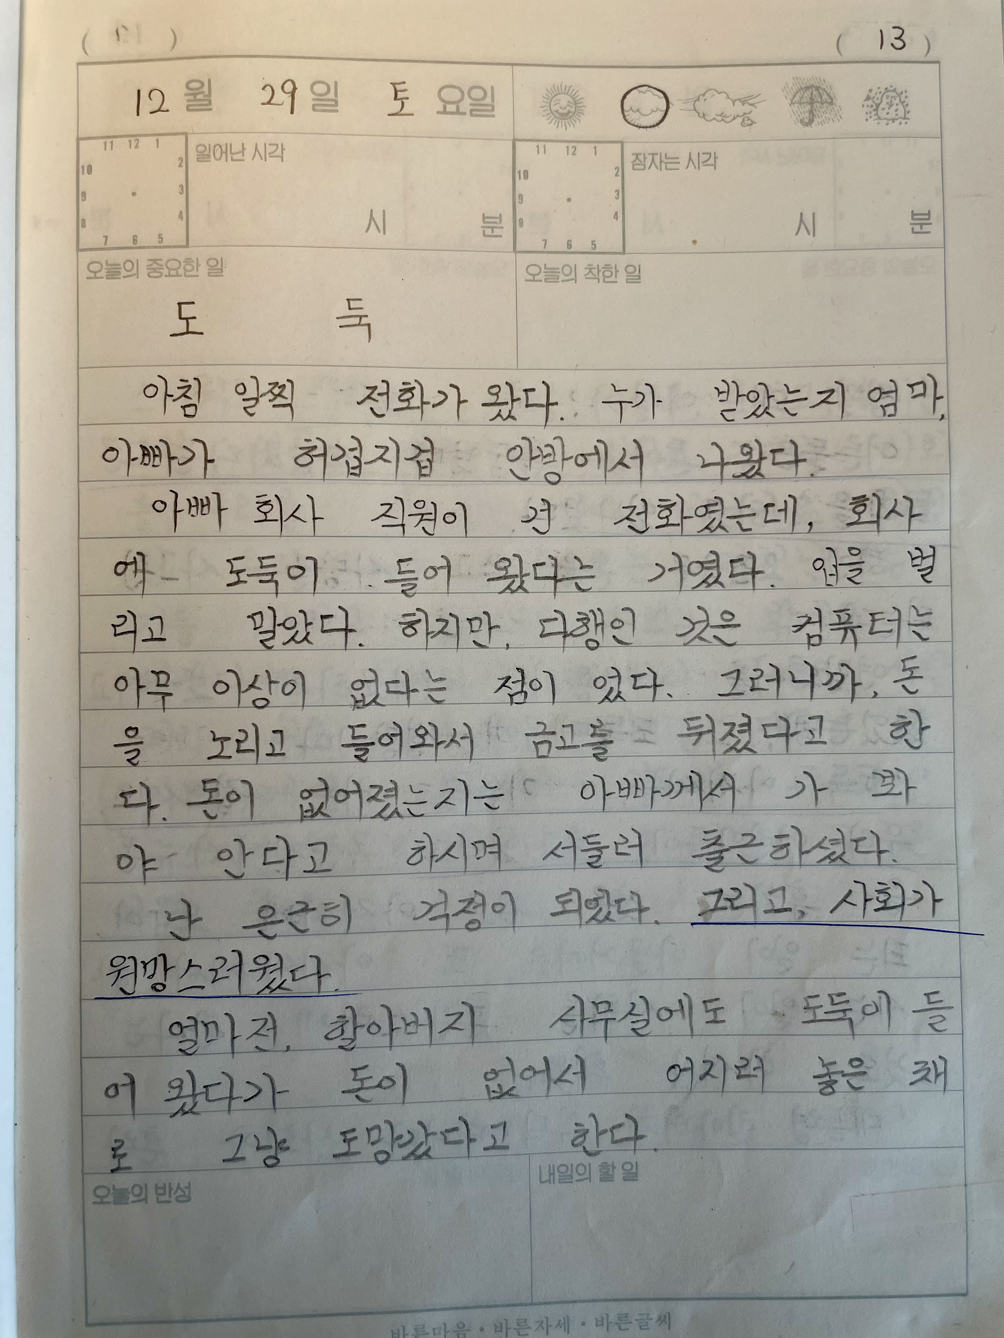 ( 13 )
12 월 29 일 토 요일
11 12 1
10 2
9 3
8 4
7 6 5
일어난 시각
시 분
11 12 1
10 2
9 3
8 4
7 6 5
잠자는 시각
시 분
오늘의 중요한 일
오늘의 착한 일
도 둑
아침 일찍 전화가 왔다. 누가 받았는지 엄마,
아빠가 허겁지겁 안방에서 나왔다.
아빠 회사 직원이 건 전화였는데, 회사
에 도둑이 들어 왔다는 거였다. 입을 벌
리고 말았다. 하지만, 다행인 것은 컴퓨터는
아무 이상이 없다는 점이 었다. 그러니까, 돈
을 노리고 들어와서 금고를 뒤졌다고 한
다. 돈이 없어졌는지는 아빠께서 가 봐
야 안다고 하시며 서둘러 출근하셨다.
난 은근히 걱정이 되었다. 그리고, 사회가
원망스러웠다.
얼마전, 할아버지 사무실에도 도둑이 들
어 왔다가 돈이 없어서 어지러 놓은 채
로 그냥 도망갔다고 한다.
오늘의 반성
내일의 할 일
바른마음 · 바른자세 · 바른글씨